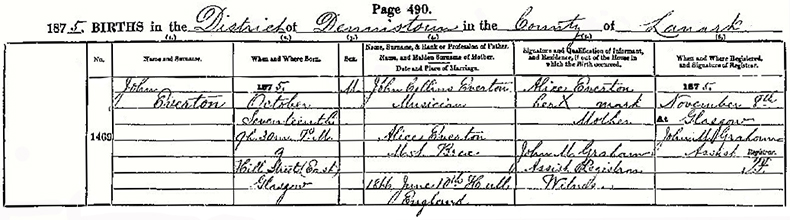 Page 490.
1875. BIRTHS in the District of Dennistoun in the County of Lanark
No.
Name and Surname.
When and Where Born.
Sex.
Name, Surname, & Rank or Profession of Father.
Name, and Maiden Surname of Mother.
Date and Place of Marriage.
Signature and Qualification of Informant,
and Residence, if out of the House in
which the Birth occurred.
When and Where Registered,
and Signature of Registrar.
1469
John
Everton
1875.
October
Seventeenth
9h. 30m. P.M.
9
Hill Street (East)
Glasgow
M
John Everton
Musician
Alice Everton
M.S.
1866 June 10th Hull
England
Alice Everton
her X mark
Mother
John M. Graham
Assist Registrar
Witness
1875.
November 8th
At Glasgow
John M. Graham
Assist Registrar.